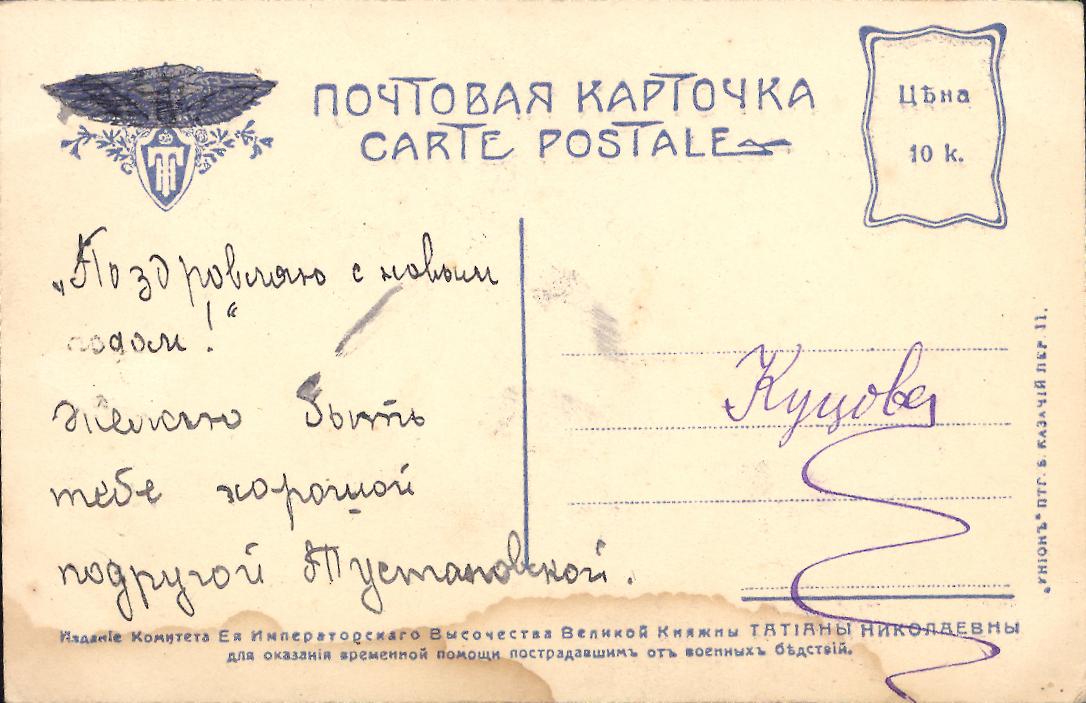 ПОЧТОВАЯ КАРТОЧКА
CARTE POSTALE
Цѣна
10 к.
„Поздровляю с новым
годом!“
Желаю быть
тебе хорошой
подругой Тустановской.
Куцова
Изданіе Комитета Ея Императорскаго Высочества Великой Княжны ТАТІАНЫ НИКОЛАЕВНЫ
для оказанія временной помощи пострадавшимъ отъ военныхъ бѣдствій.
„УНІОНЪ“ ПТГ. Б. КАЗАЧІЙ ПЕР. 11.